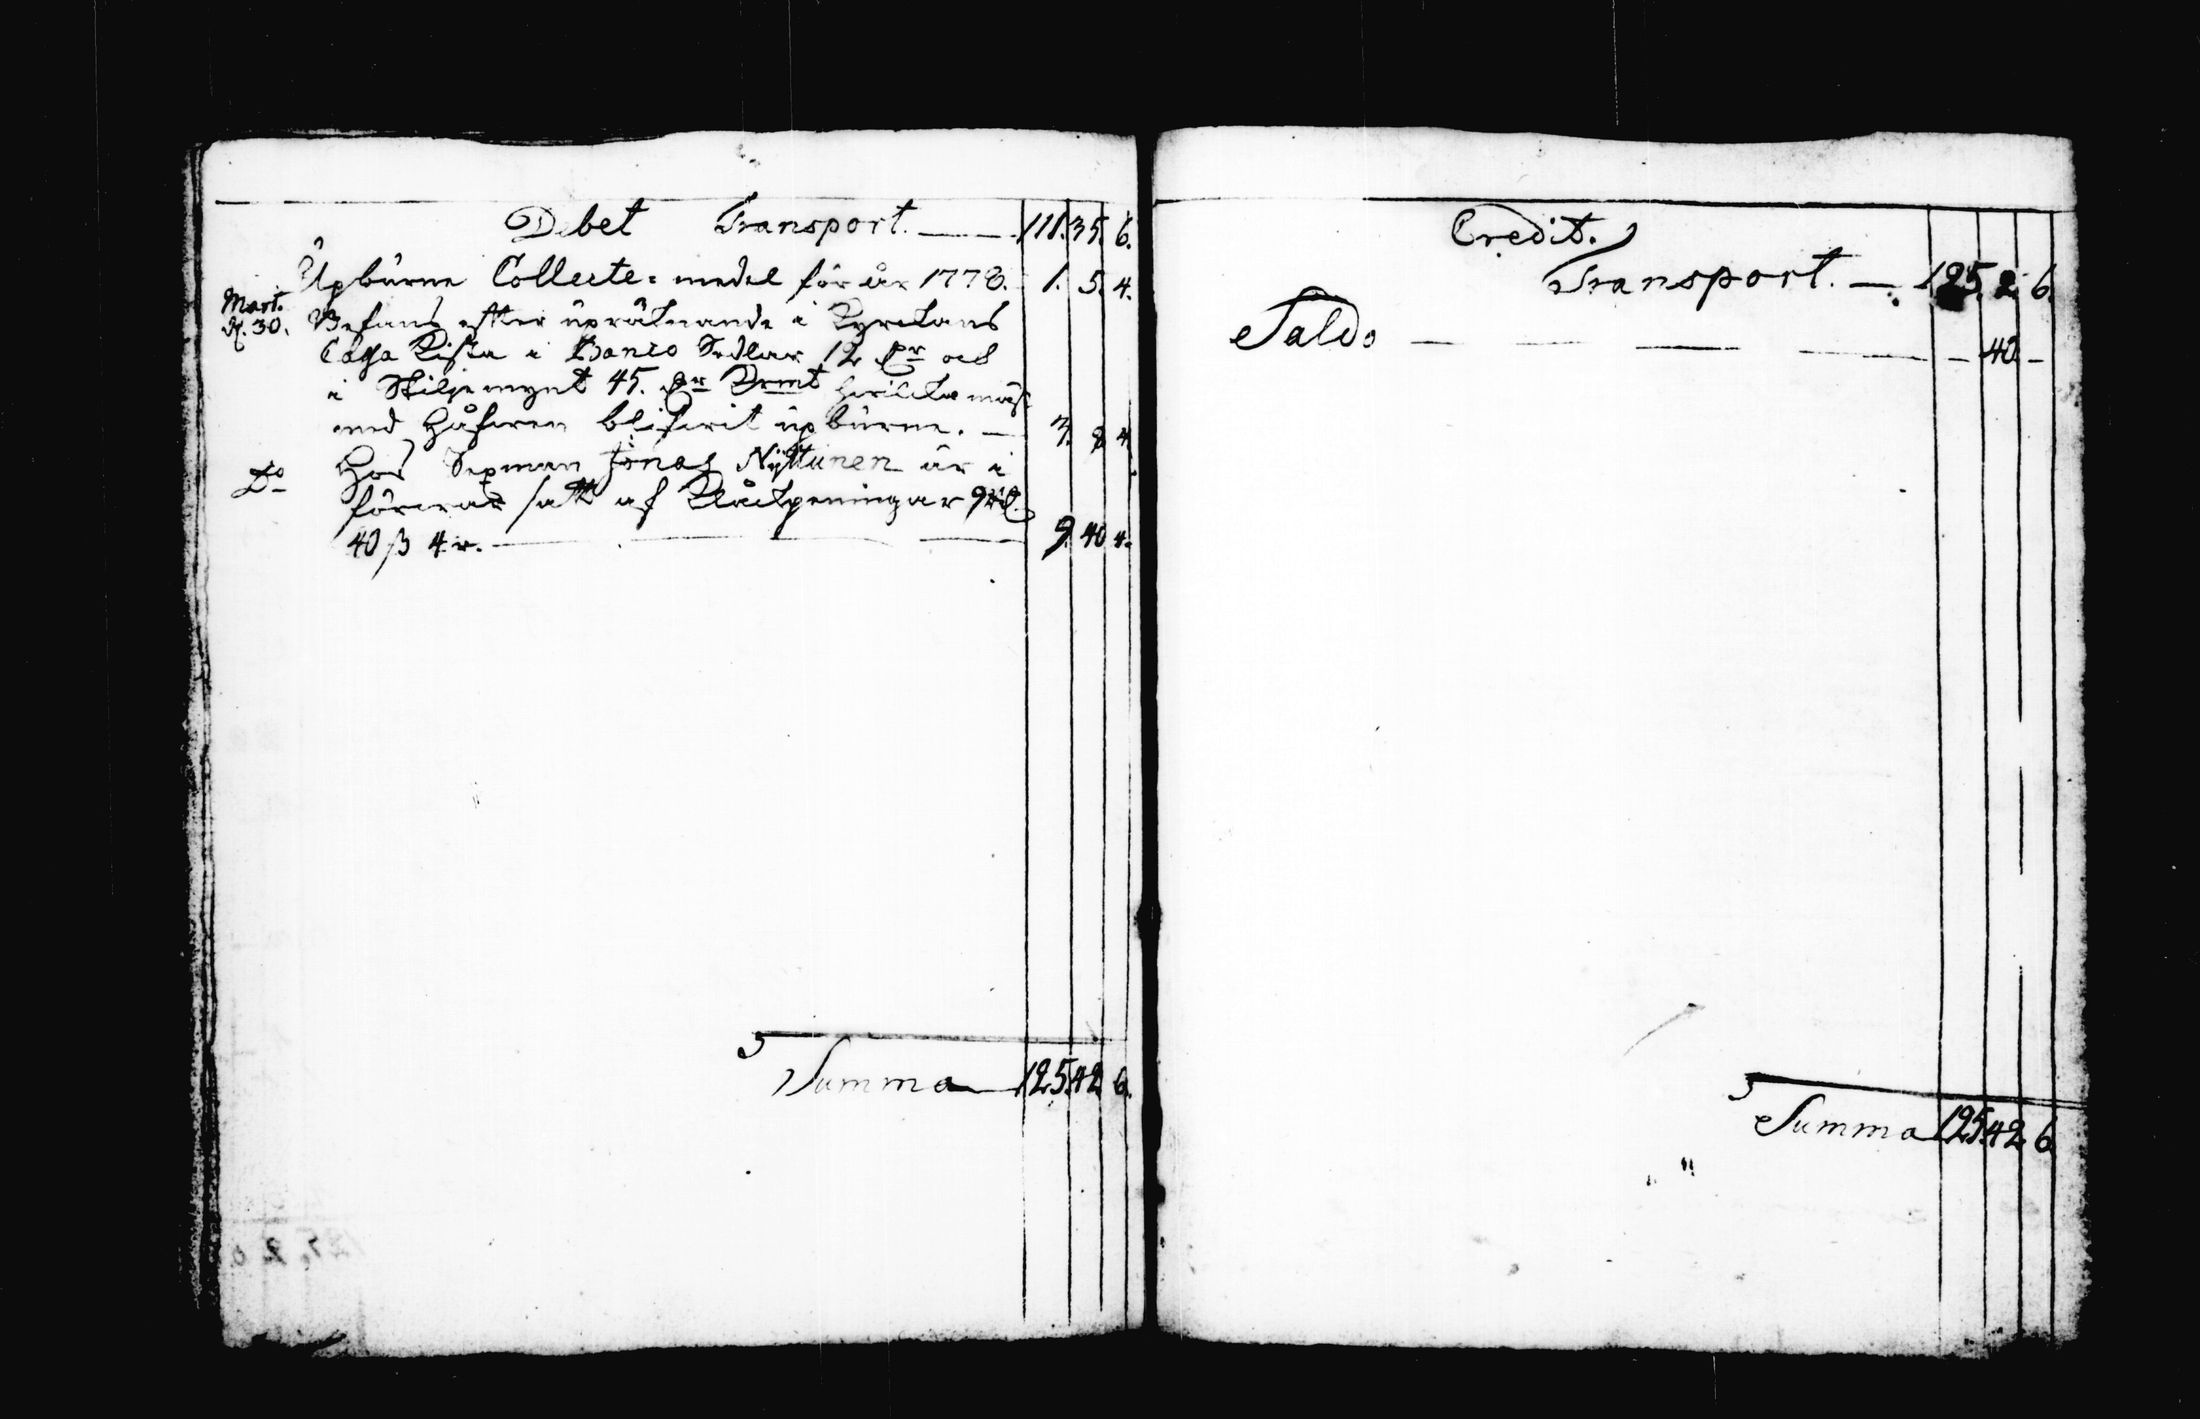 Debet Transport. 111. 35. 6.
Upburne Collecte-medel för år 1778. 1. 5. 4.
Mart.
d. 30. Befans efter upräknande i Kyrckans
Cassa Kista i Banco Sedlar 12 Pr och
i Skiljemynt 45. Pr Krmt hvilcka
med Håfven blifwit upburne. 3. 9 4
Do Hos Sexman Jonas Nyttunen är i
förwar satt af Klåckpeningar 9 Rd
40 ß 4 r. 9. 40 4.
Summa 125. 42 6.
Credit.
Transport. 125. 2. 6.
Saldo 40
Summa 125. 42 6